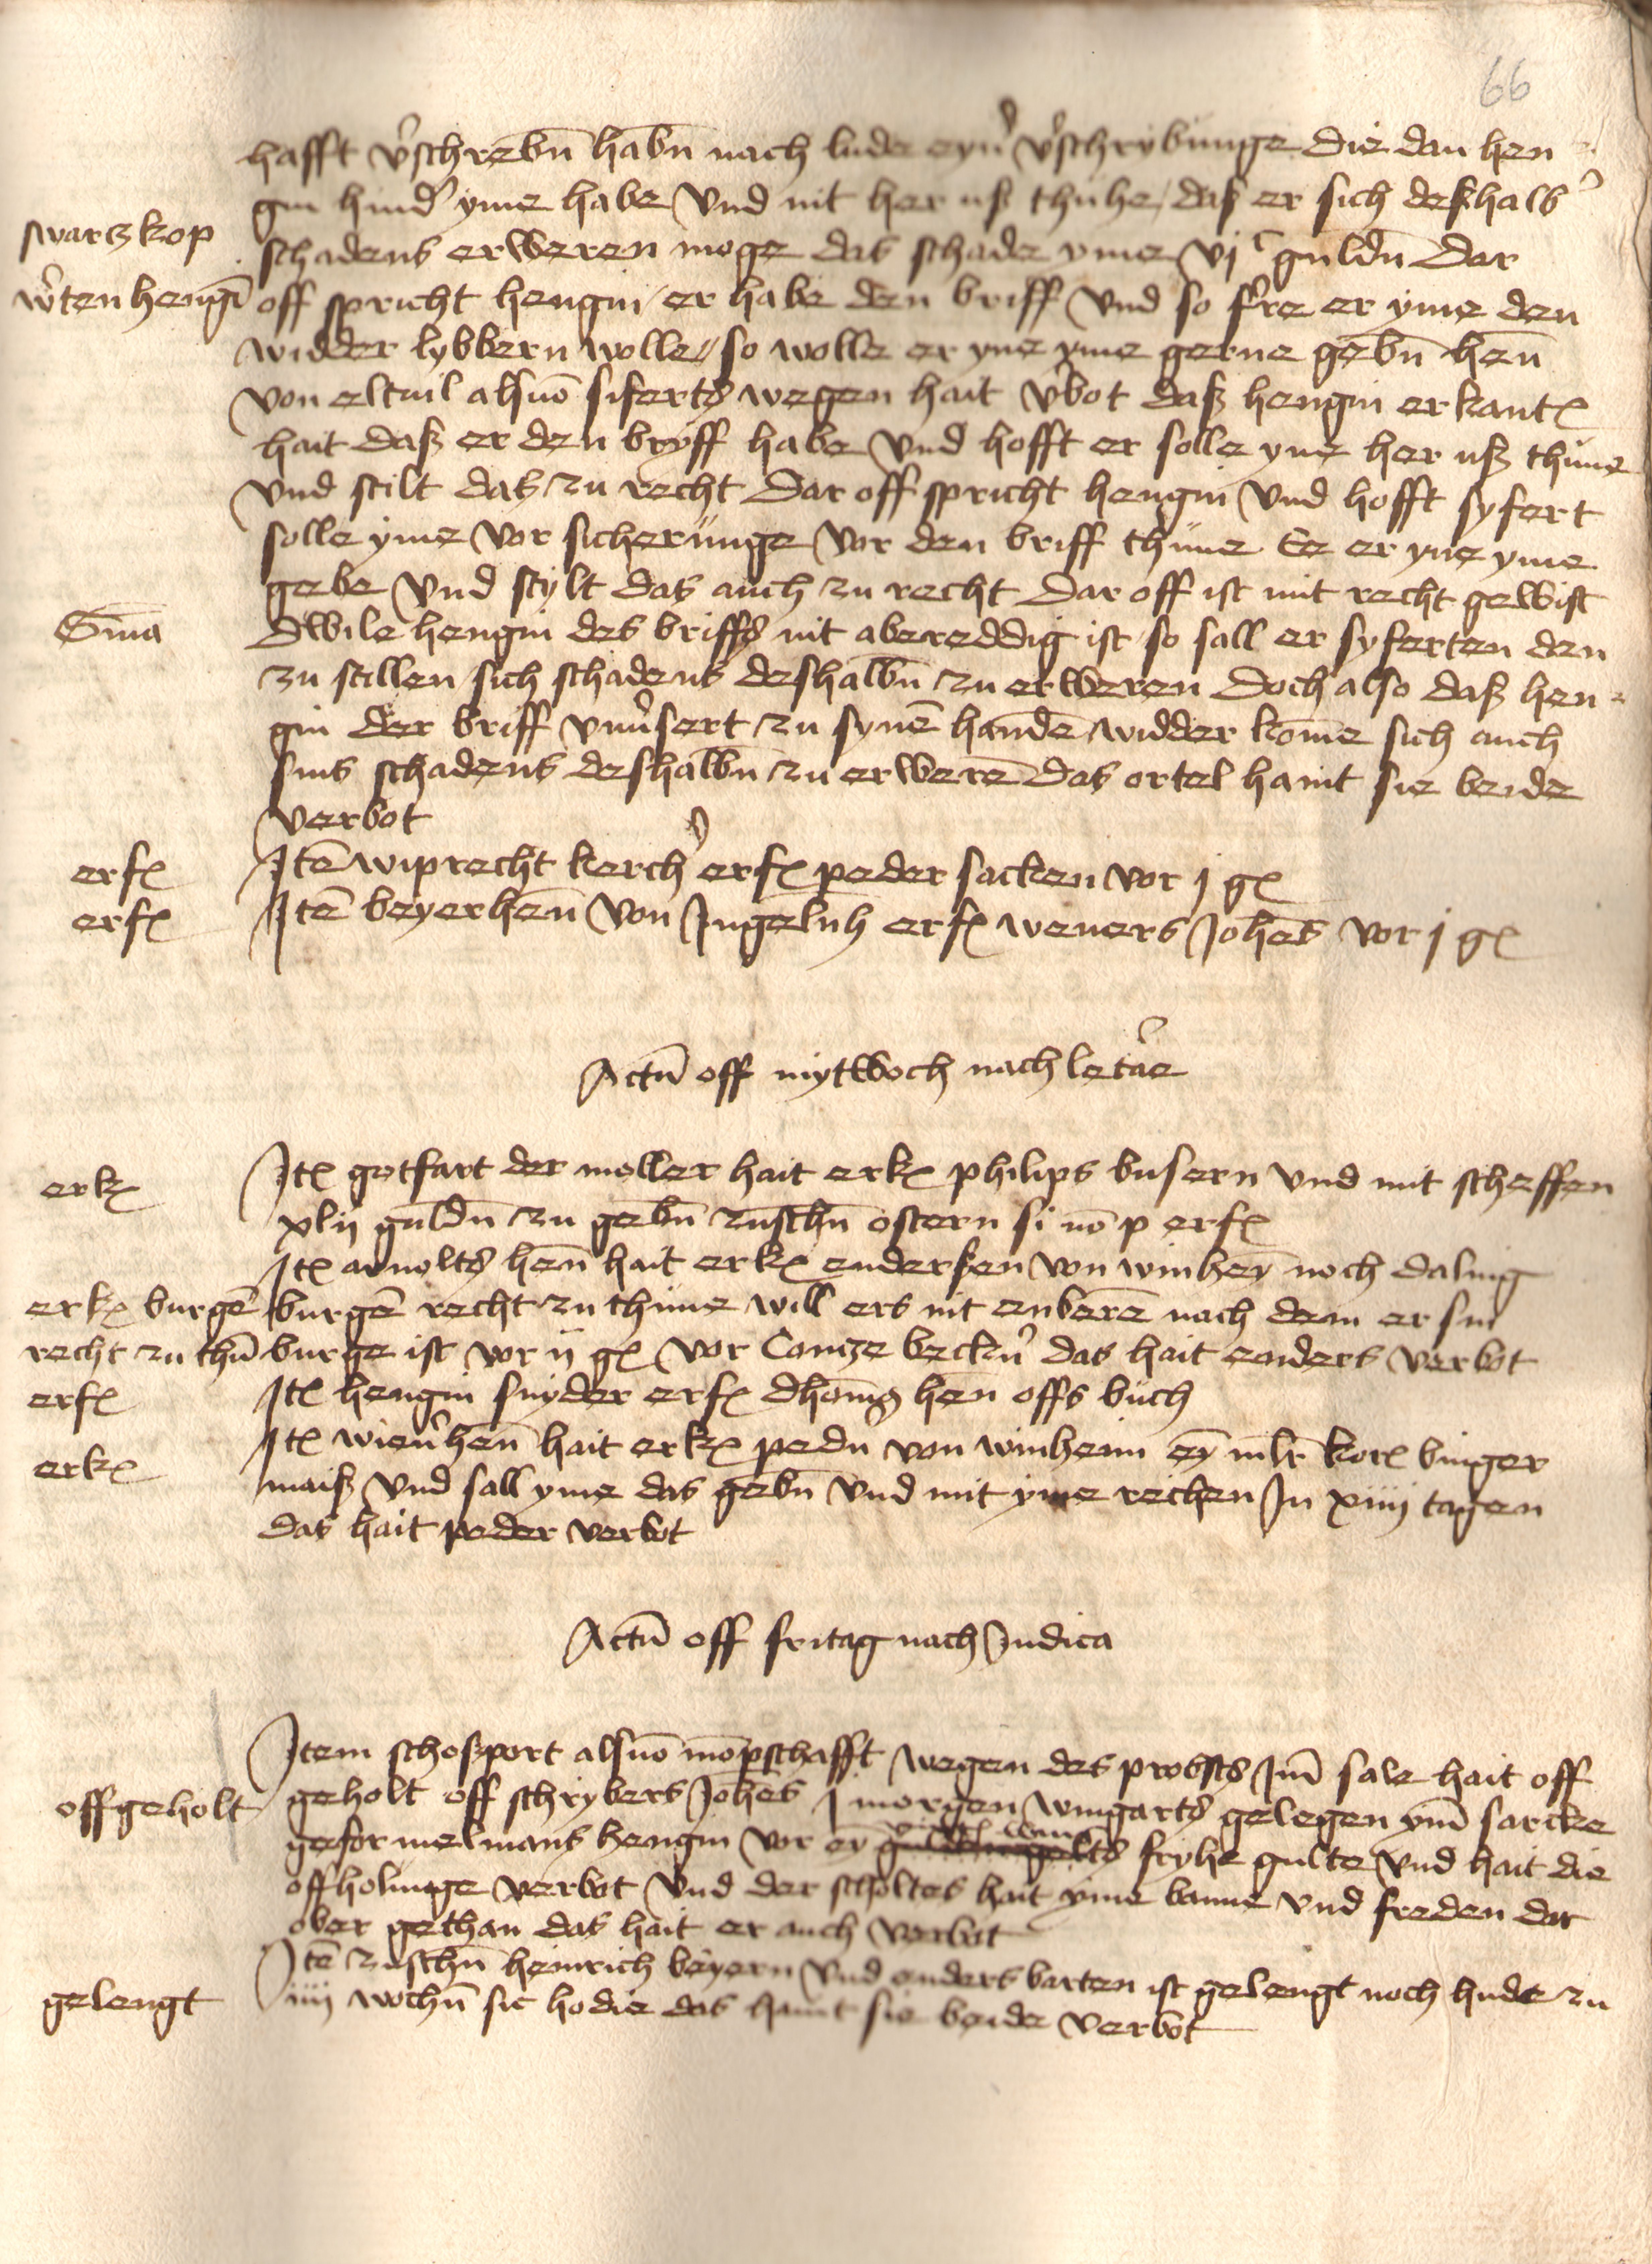 66
hafft v̉schrebn̄ habn̄ nach lude eyn̉ v̉schrybunge die dan hen
gin hind̉ yme habe vnd nit her uß thuhe / daß er sich deßhalb̉
swarczkop
schadens erweren moge das schade yme vj c guldn̄ Dar
w̉ten hengī
off spricht hengin / er habe den briff vnd so f̉re er yme den
widder lybbern wolle / so wolle er yne yme gerne gebn̄ hen̄
von eltuil alsuō sifertꝭ wegen hait v̉bot daß hengin erkant
hait daß er den bryff habe vnd hofft er solle yne her uß thune
vnd stilt das zu recht Dar off spricht hengin vnd hofft syfert
solle yme vor sicherunge vor den briff thune Ee er yne yme
gebe vnd stylt das auch zu recht Dar off ist mit recht gewist
Sn̄ia
Dwile hengin des briffꝭ nit abereddig ist so sall er syferten den
zu stillen sich schadens deshalbn̄ zu erweren Doch also daß hen
gin der briff vnủsert zu synē handē widder kome sich auch
sins schadens deshalbn̄ zu erwerē Das ortel haint sie beide
verbot
erf
Itē wiprecht kerch̉ erf peder sacken vor j g
erf
Itē beyerhen̄ von Jngelnh erf weners Johēs vor j g
Actū off mytwoch nach let̉are
erk
It gotfart der moller hait erk philips busern vnd mit scheffen
xlij guldn̄ zu gebn̄ zuschn̄ ostern si nō p erf
It arnoltꝭ hen̄ hait erk endersen von winheȳ noch daling
erk burgē
burgē recht zu thune will ers nit enberē nach dem er sin
recht zu thū
burge ist vor ij g vor Contze beckn̉ das hait enders verbot
erf
It hengin snyder erf dhomꝭ hen̄ offs buch
erk
It wien̉hen̄ hait erk pedn̉ von winheim eȳ mlr̄ kor binger
maiß vnd sall yme das gebn̄ vnd mit yme rechen Jn xiiij tagen
das hait peder verbot
Actū off fritag nach Judica
Item schoßport alsuō mōpschafft wegen des probstꝭ Jm̄ sale hait off
offgeholt
geholt off schrybers Johēs j morgen wingartꝭ gelegen ym̄ sarcke
gefor melmans hengin vor eȳ fryhe gulte vnd hait die
offholunge verbot vnd der scholtes hait yme banne vnd freden dar
ober gethan das hait er auch verbot
Itē zuschn̄ heinrich beyern vnd enders barten ist gelengt noch hude zu
gelengt
iiij wochn̄ sic hodie das haint sie beide verbot